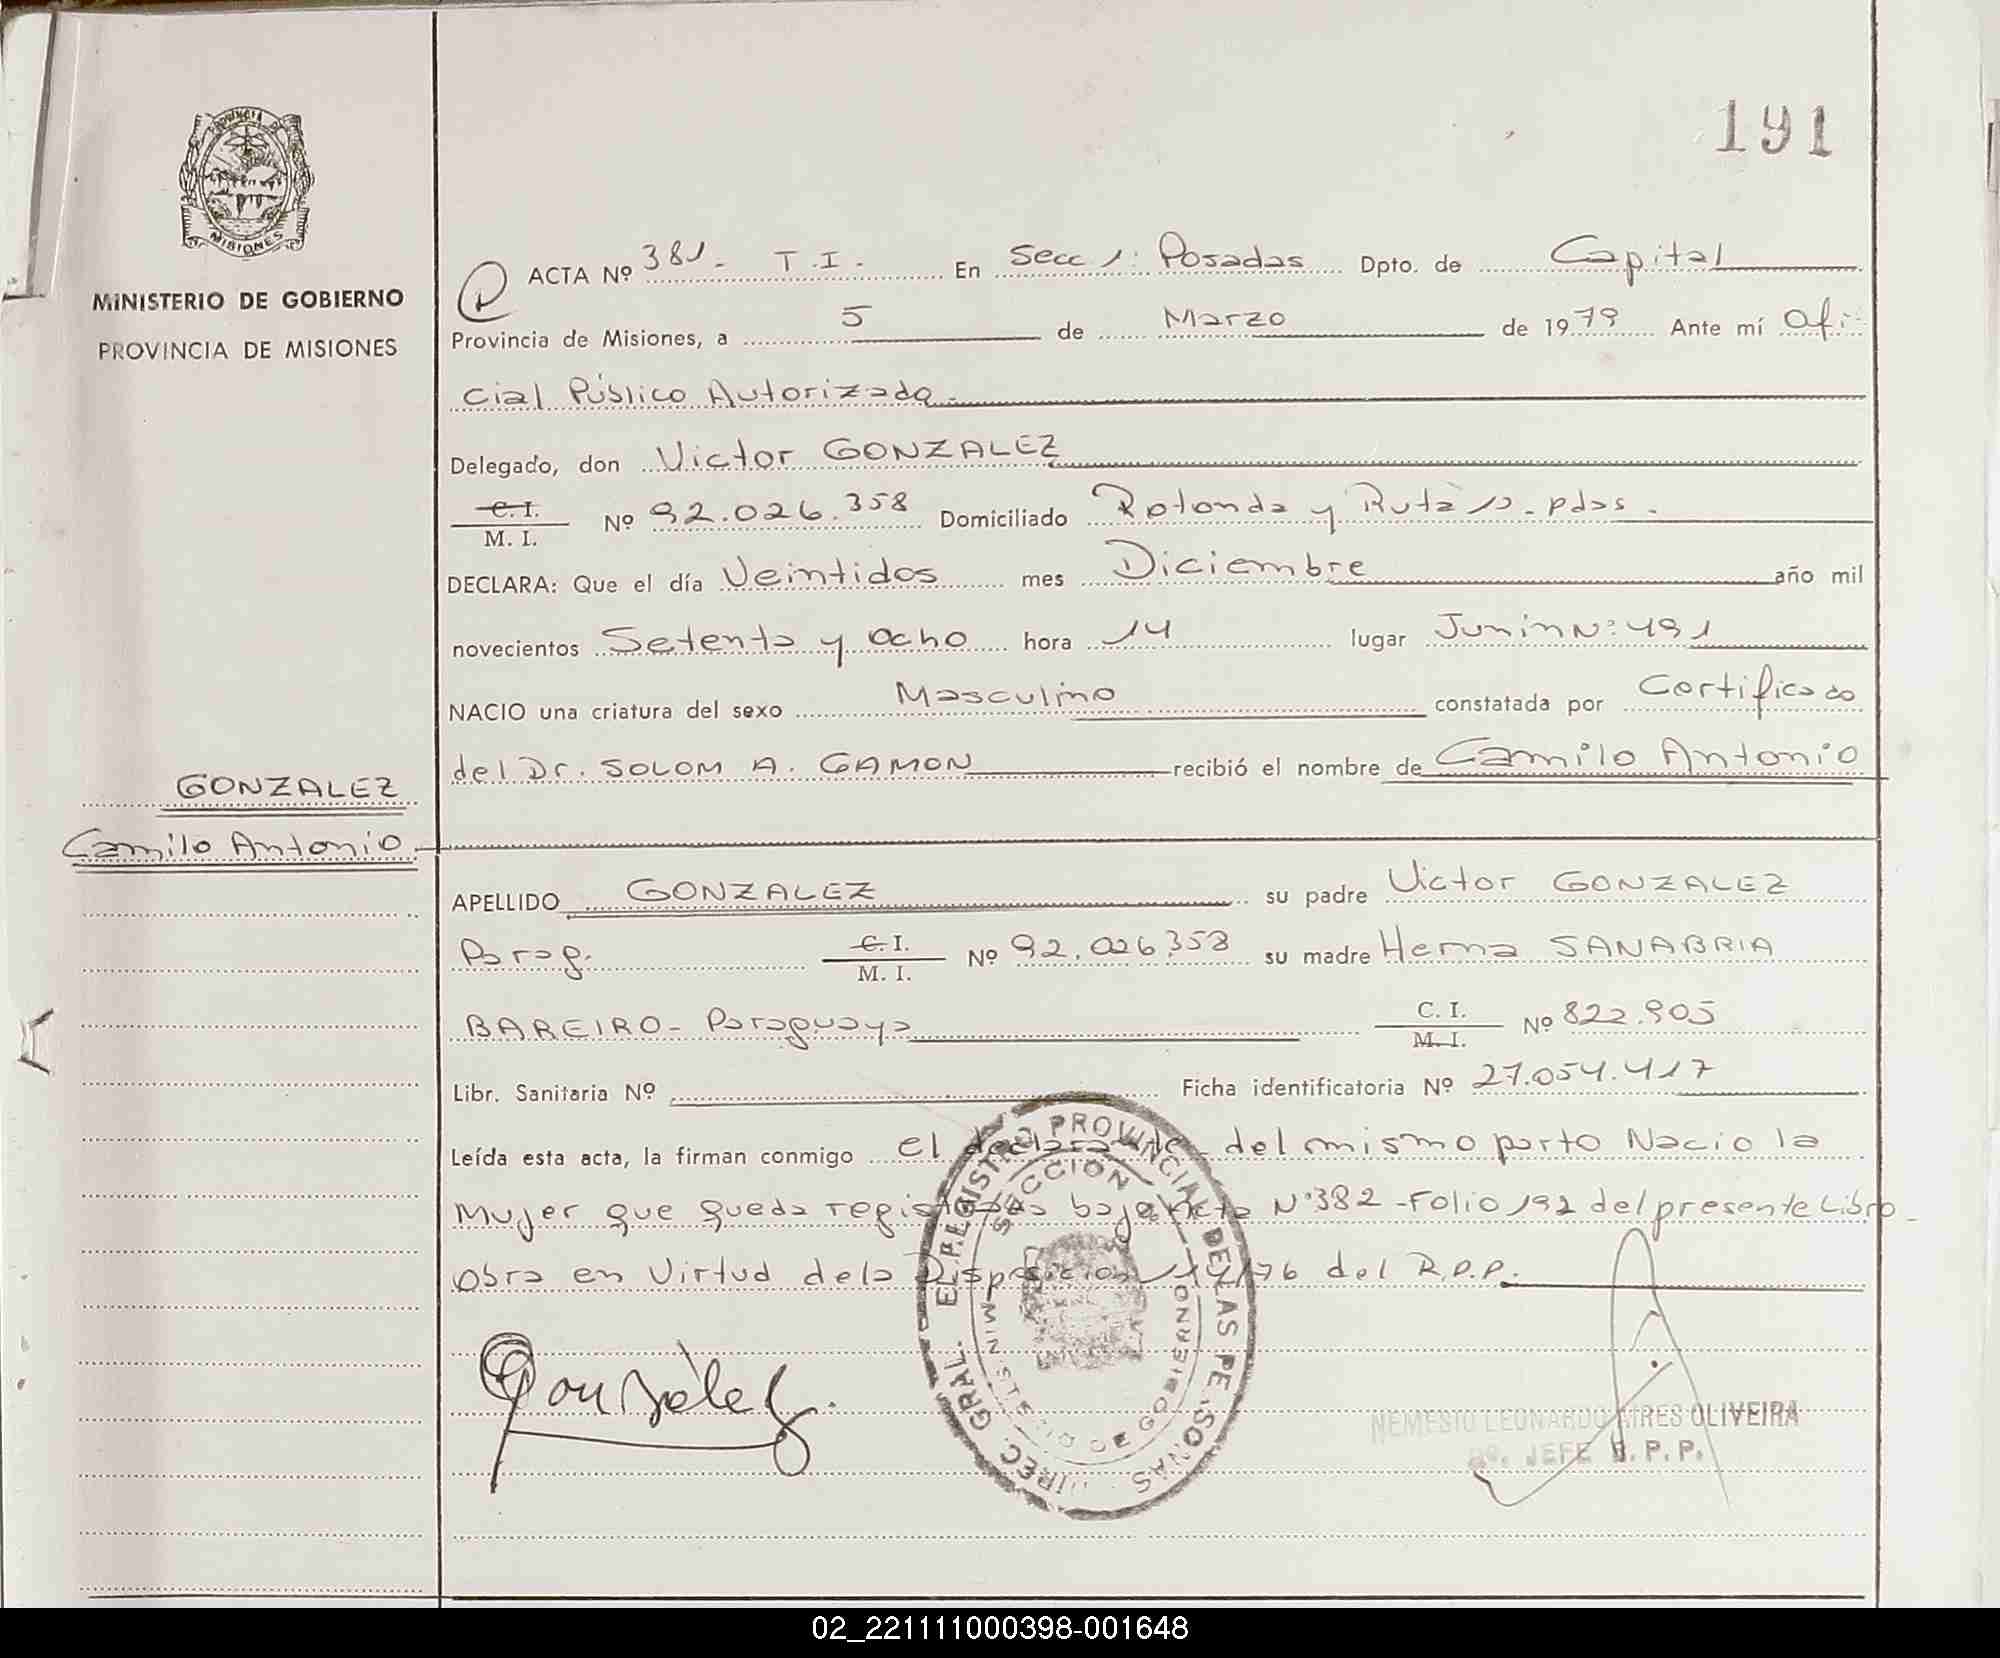 191
PROVINCIA DE
MISIONES
MINISTERIO DE GOBIERNO
PROVINCIA DE MISIONES
ACTA Nº 381- T.I. En Secc 1: Posadas Dpto. de Capital
Provincia de Misiones, a 5 de Marzo de 1979 Ante mí Ofi-
cial Público Autorizado.
Delegado, don Victor GONZALEZ
C. I. / M. I. Nº 92.026.358 Domiciliado Rotonda y Ruta 12- pdas.
DECLARA: Que el día Veintidos mes Diciembre año mil
novecientos Setenta y Ocho hora 14 lugar Junin Nº 491
NACIO una criatura del sexo Masculino constatada por Certificado
del Dr. SOLOM A. GAMON recibió el nombre de Camilo Antonio
GONZALEZ
Camilo Antonio
APELLIDO GONZALEZ su padre Victor GONZALEZ
Parag. C. I. / M. I. Nº 92.026.358 su madre Herma SANABRIA
BAREIRO- Paraguaya C. I. / M. I. Nº 822.905
Libr. Sanitaria Nº Ficha identificatoria Nº 27.054.417
Leída esta acta, la firman conmigo el declarante- del mismo parto Nacio la
Mujer que queda registrada bajo Acta Nº 382 -Folio 192 del presente Libro-
obra en Virtud de la Disposicion 117/76 del R.P.P.
DIREC. GRAL. EL REGISTRO PROVINCIAL DE LAS PERSONAS
SECCION
MINISTERIO DE GOBIERNO
Gonzàlez.
NEMESIO LEONARDO AIRES OLIVEIRA
JEFE R.P.P.
02_221111000398-001648